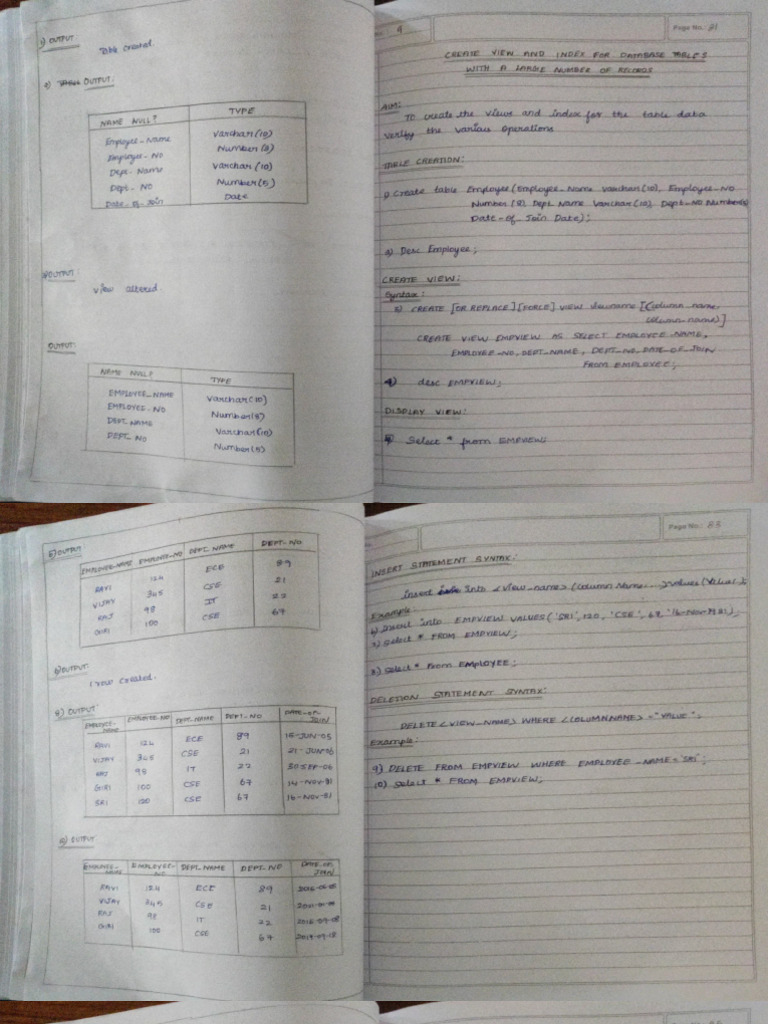 1) OUTPUT
Table created.
2) OUTPUT:
NAME NULL? TYPE
Employee-Name Varchar(10)
Employee-No Number(8)
Dept-Name Varchar(10)
Dept-No Number(5)
Date-of-Join Date
3) OUTPUT
View altered.
OUTPUT:
NAME NULL? TYPE
EMPLOYEE_NAME Varchar(10)
EMPLOYEE-NO Number(8)
DEPT_NAME Varchar(10)
DEPT_NO Number(5)
9
Page No.: 81
CREATE VIEW AND INDEX FOR DATABASE TABLES
WITH A LARGE NUMBER OF RECORDS
AIM:
To create the views and index for the table data
verify the various operations
TABLE CREATION:
1) Create table Employee(Employee-Name varchar(10), Employee-No
Number(8), Dept Name Varchar(10), Dept-No Number(5)
Date-of Join Date);
2) Desc Employee;
CREATE VIEW:
Syntax:
3) CREATE [OR REPLACE][FORCE] VIEW viewname [(column name,
column name)]
CREATE VIEW EMPVIEW AS SELECT EMPLOYEE-NAME,
EMPLOYEE-NO, DEPT-NAME, DEPT-NO, DATE-OF-JOIN
FROM EMPLOYEE;
4) desc EMPVIEW;
DISPLAY VIEW:
5) Select * from EMPVIEW;
5) OUTPUT
EMPLOYEE-NAME EMPLOYEE-NO DEPT-NAME DEPT-NO
RAVI 124 ECE 89
VIJAY 345 CSE 21
RAJ 98 IT 22
GIRI 100 CSE 67
6) OUTPUT:
1 row created.
OUTPUT:
EMPLOYEE-NAME EMPLOYEE-NO DEPT-NAME DEPT-NO DATE-OF-JOIN
RAVI 124 ECE 89 15-JUN-05
VIJAY 345 CSE 21 21-JUN-06
RAJ 98 IT 22 30-SEP-06
GIRI 100 CSE 67 14-NOV-81
SRI 120 CSE 67 16-NOV-81
OUTPUT
EMPLOYEE-NAME EMPLOYEE-NO DEPT-NAME DEPT-NO DATE-OF-JOIN
RAVI 124 ECE 89
VIJAY 345 CSE 21
RAJ 98 IT 22
GIRI 100 CSE 67
Page No.: 83
INSERT STATEMENT SYNTAX:
insert into <view_name>(Column Name...)values(Value..);
Example:
6) Insert into EMPVIEW VALUES('SRI', 120, 'CSE', 67, '16-Nov-1981);
7) Select * FROM EMPVIEW;
8) Select * From EMPLOYEE;
DELETION STATEMENT SYNTAX:
DELETE <VIEW_NAME> WHERE <COLUMNNAME> = "VALUE";
Example:
9) DELETE FROM EMPVIEW WHERE EMPLOYEE-NAME='SRI';
10) Select * FROM EMPVIEW;